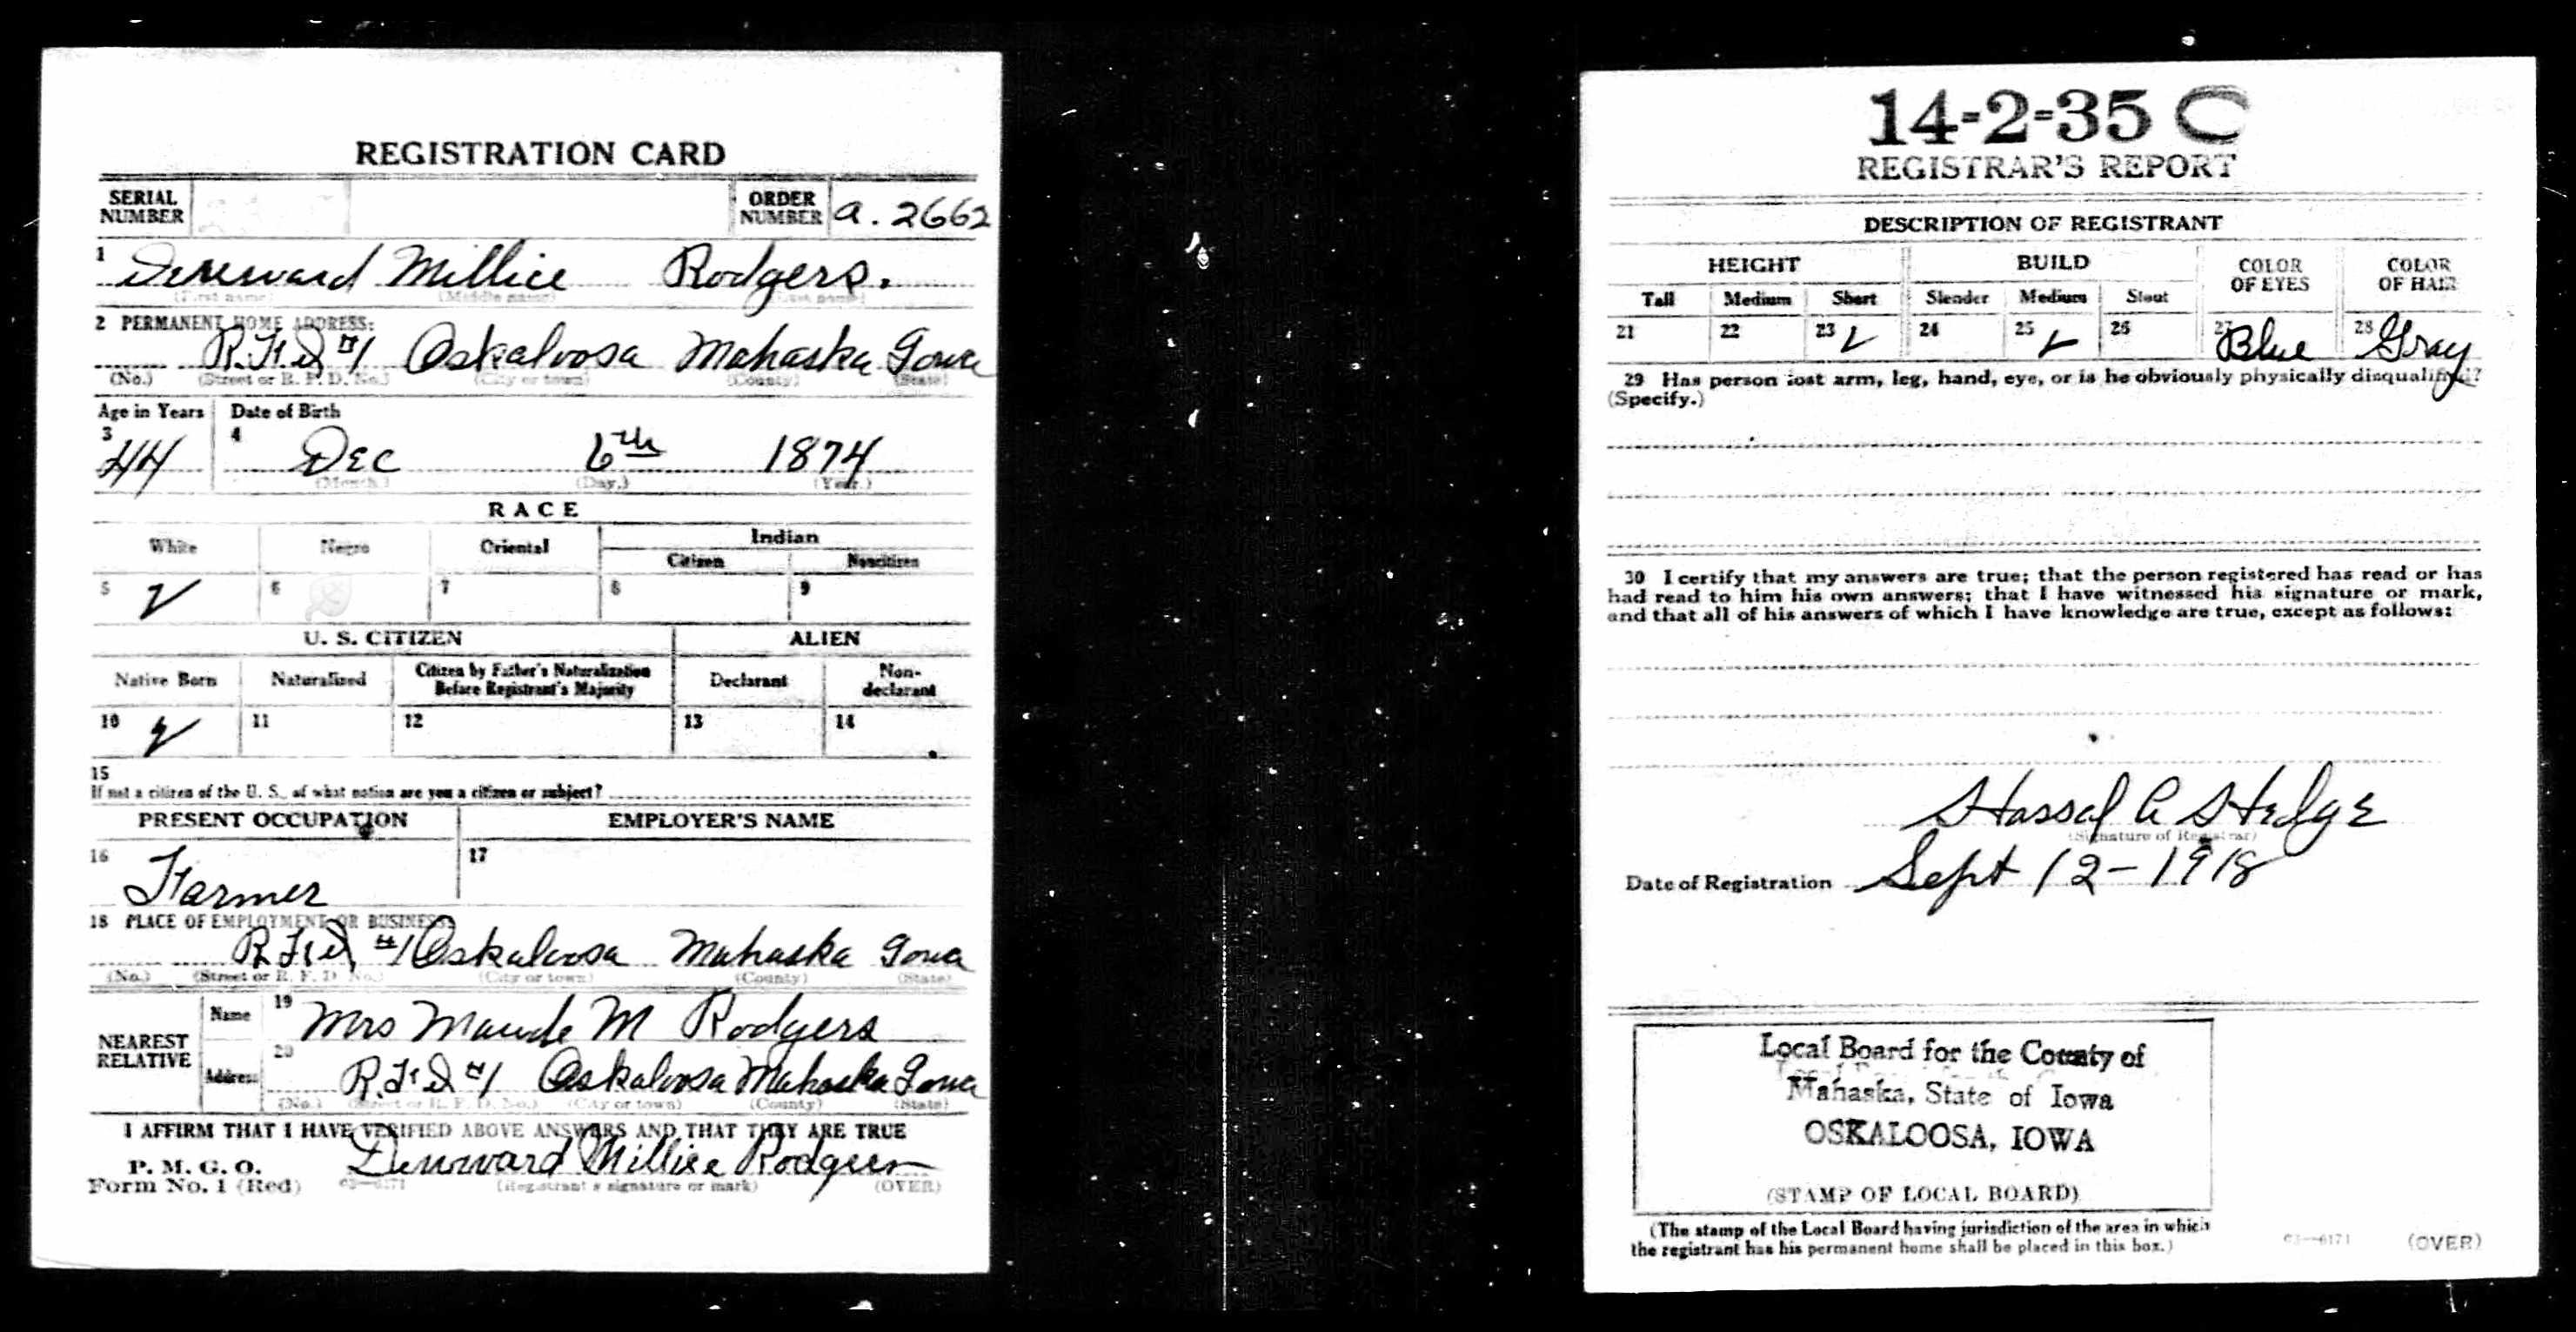 REGISTRATION CARD
SERIAL NUMBER ORDER NUMBER a. 2662
1 Millice Rodgers.
(First name) (Middle name) (Last name)
2 PERMANENT HOME ADDRESS:
R.F.D #1 Oskaloosa Mahaska Iowa
(No.) (Street or R. F. D. No.) (City or town) (County) (State)
Age in Years Date of Birth
3 44 4 Dec 6th 1874
(Month.) (Day.) (Year.)
RACE
White Negro Oriental Indian
Citizen Noncitizen
5 ✓ 6 7 8 9
U. S. CITIZEN ALIEN
Native Born Naturalized Citizen by Father's Naturalization Before Registrant's Majority Declarant Non-declarant
10 ✓ 11 12 13 14
15
If not a citizen of the U. S., of what nation are you a citizen or subject?
PRESENT OCCUPATION EMPLOYER'S NAME
16 Farmer 17
18 PLACE OF EMPLOYMENT OR BUSINESS:
R.F.D. #1 Oskaloosa Mahaska Iowa
(No.) (Street or R. F. D. No.) (City or town) (County) (State)
NEAREST RELATIVE
Name 19 Mrs Maude M Rodgers
Address 20 R.F.D #1 Oskaloosa Mahaska Iowa
(No.) (Street or R. F. D. No.) (City or town) (County) (State)
I AFFIRM THAT I HAVE VERIFIED ABOVE ANSWERS AND THAT THEY ARE TRUE
P. M. G. O.
Form No. 1 (Red) 63—6171 Millice Rodgers
(Registrant's signature or mark) (OVER)
14-2-35 C
REGISTRAR'S REPORT
DESCRIPTION OF REGISTRANT
HEIGHT BUILD COLOR OF EYES COLOR OF HAIR
Tall Medium Short Slender Medium Stout
21 22 23 ✓ 24 25 ✓ 26 27 Blue 28 Gray
29 Has person lost arm, leg, hand, eye, or is he obviously physically disqualified?
(Specify.)
30 I certify that my answers are true; that the person registered has read or has
had read to him his own answers; that I have witnessed his signature or mark,
and that all of his answers of which I have knowledge are true, except as follows:
A Hedge
(Signature of Registrar)
Date of Registration Sept 12-1918
Local Board for the County of
Mahaska, State of Iowa
OSKALOOSA, IOWA
(STAMP OF LOCAL BOARD)
(The stamp of the Local Board having jurisdiction of the area in which
the registrant has his permanent home shall be placed in this box.)
63—6171 (OVER)